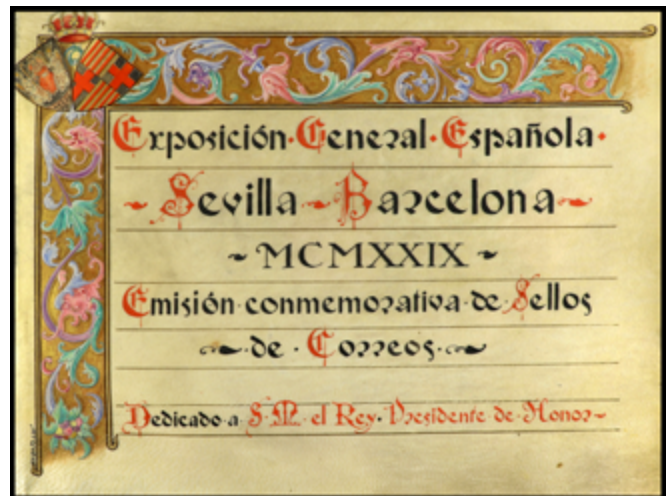 Exposición · General · Española ·
~ Sevilla ~ Barcelona ~
~ MCMXXIX ~
Emisión · conmemorativa · de · Sellos
~ · de · Correos · ~
Dedicado · a · S. M. el Rey · Presidente · de · Honor ~